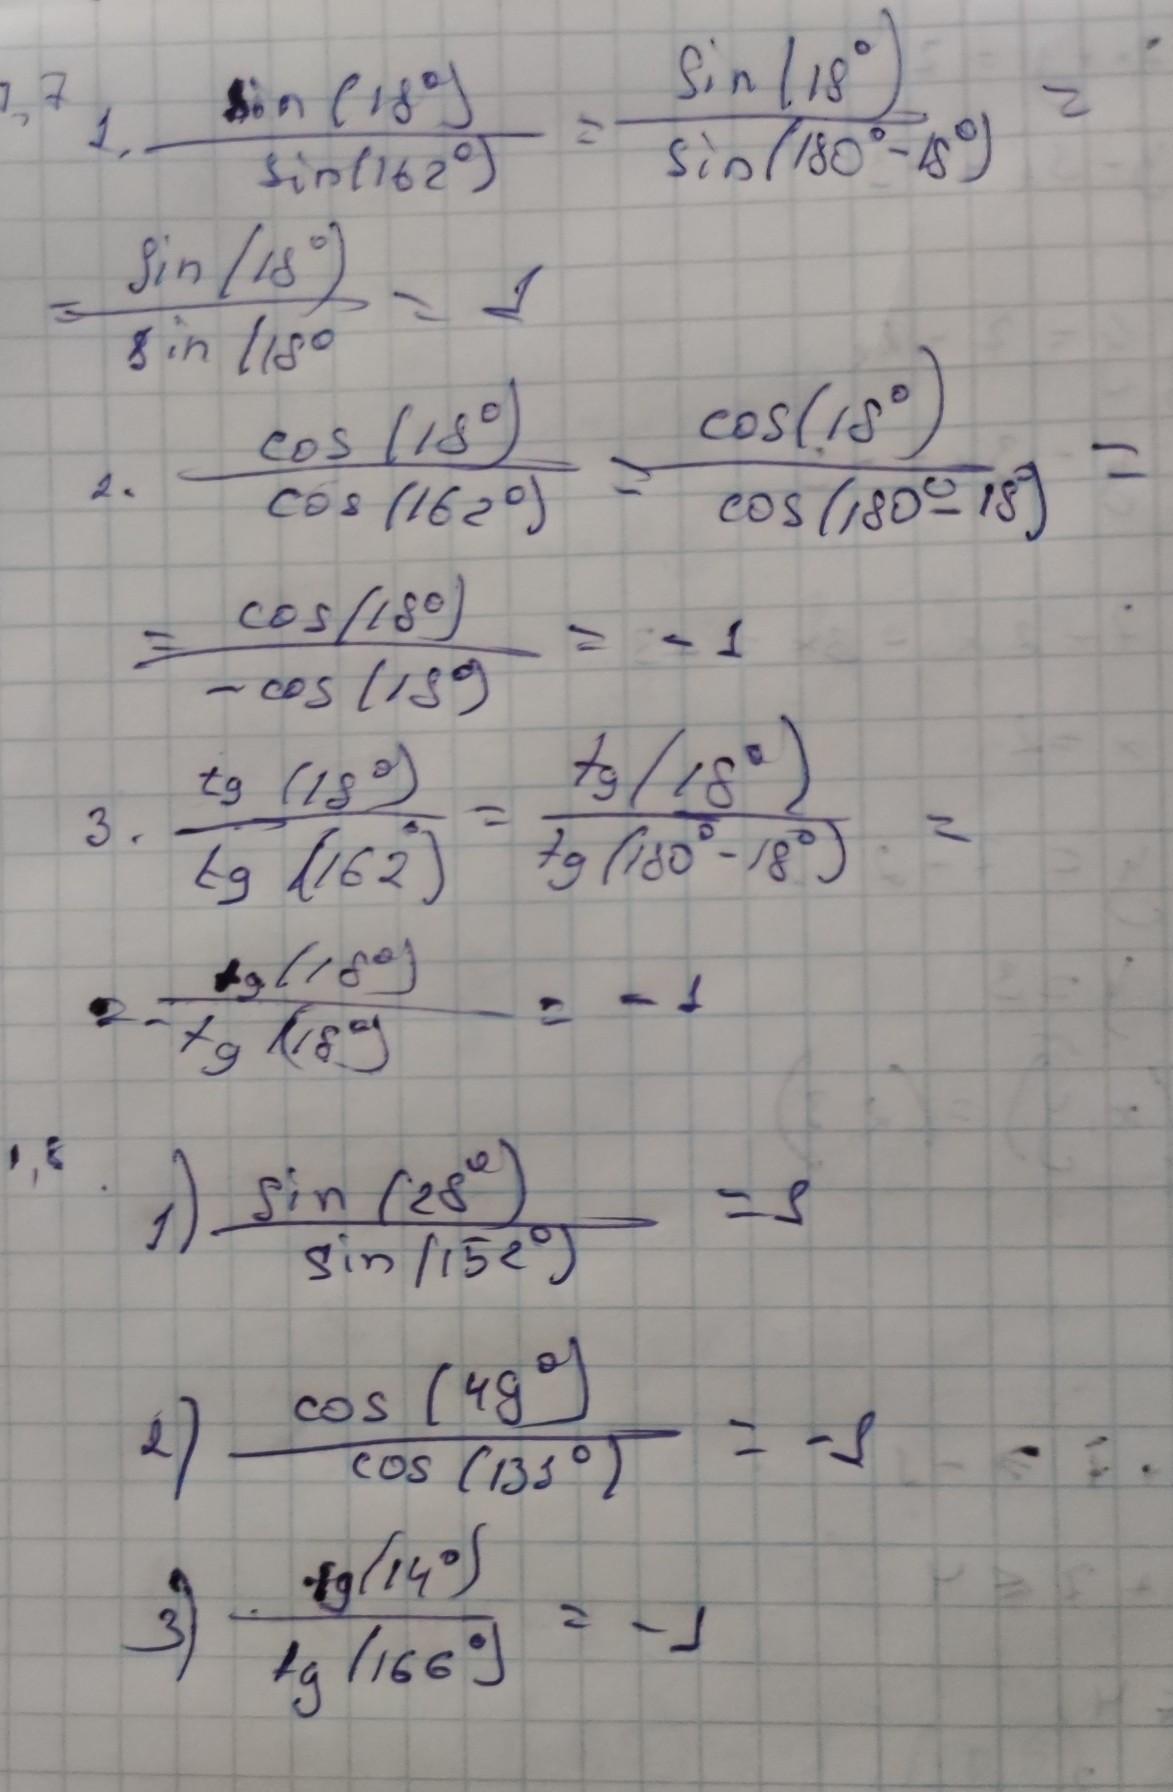 1,7 1. sin(18°)/sin(162°) = sin(18°)/sin(180°-18°) =
= sin(18°)/sin(18° = 1
2. cos(18°)/cos(162°) = cos(18°)/cos(180°-18°) =
= cos(18°)/-cos(18°) = -1
3. tg(18°)/tg(162°) = tg(18°)/tg(180°-18°) =
= tg(18°)/-tg(18°) = -1
1) sin(28°)/sin(152°) = 1
2) cos(49°)/cos(131°) = -1
3) tg(14°)/tg(166°) = -1